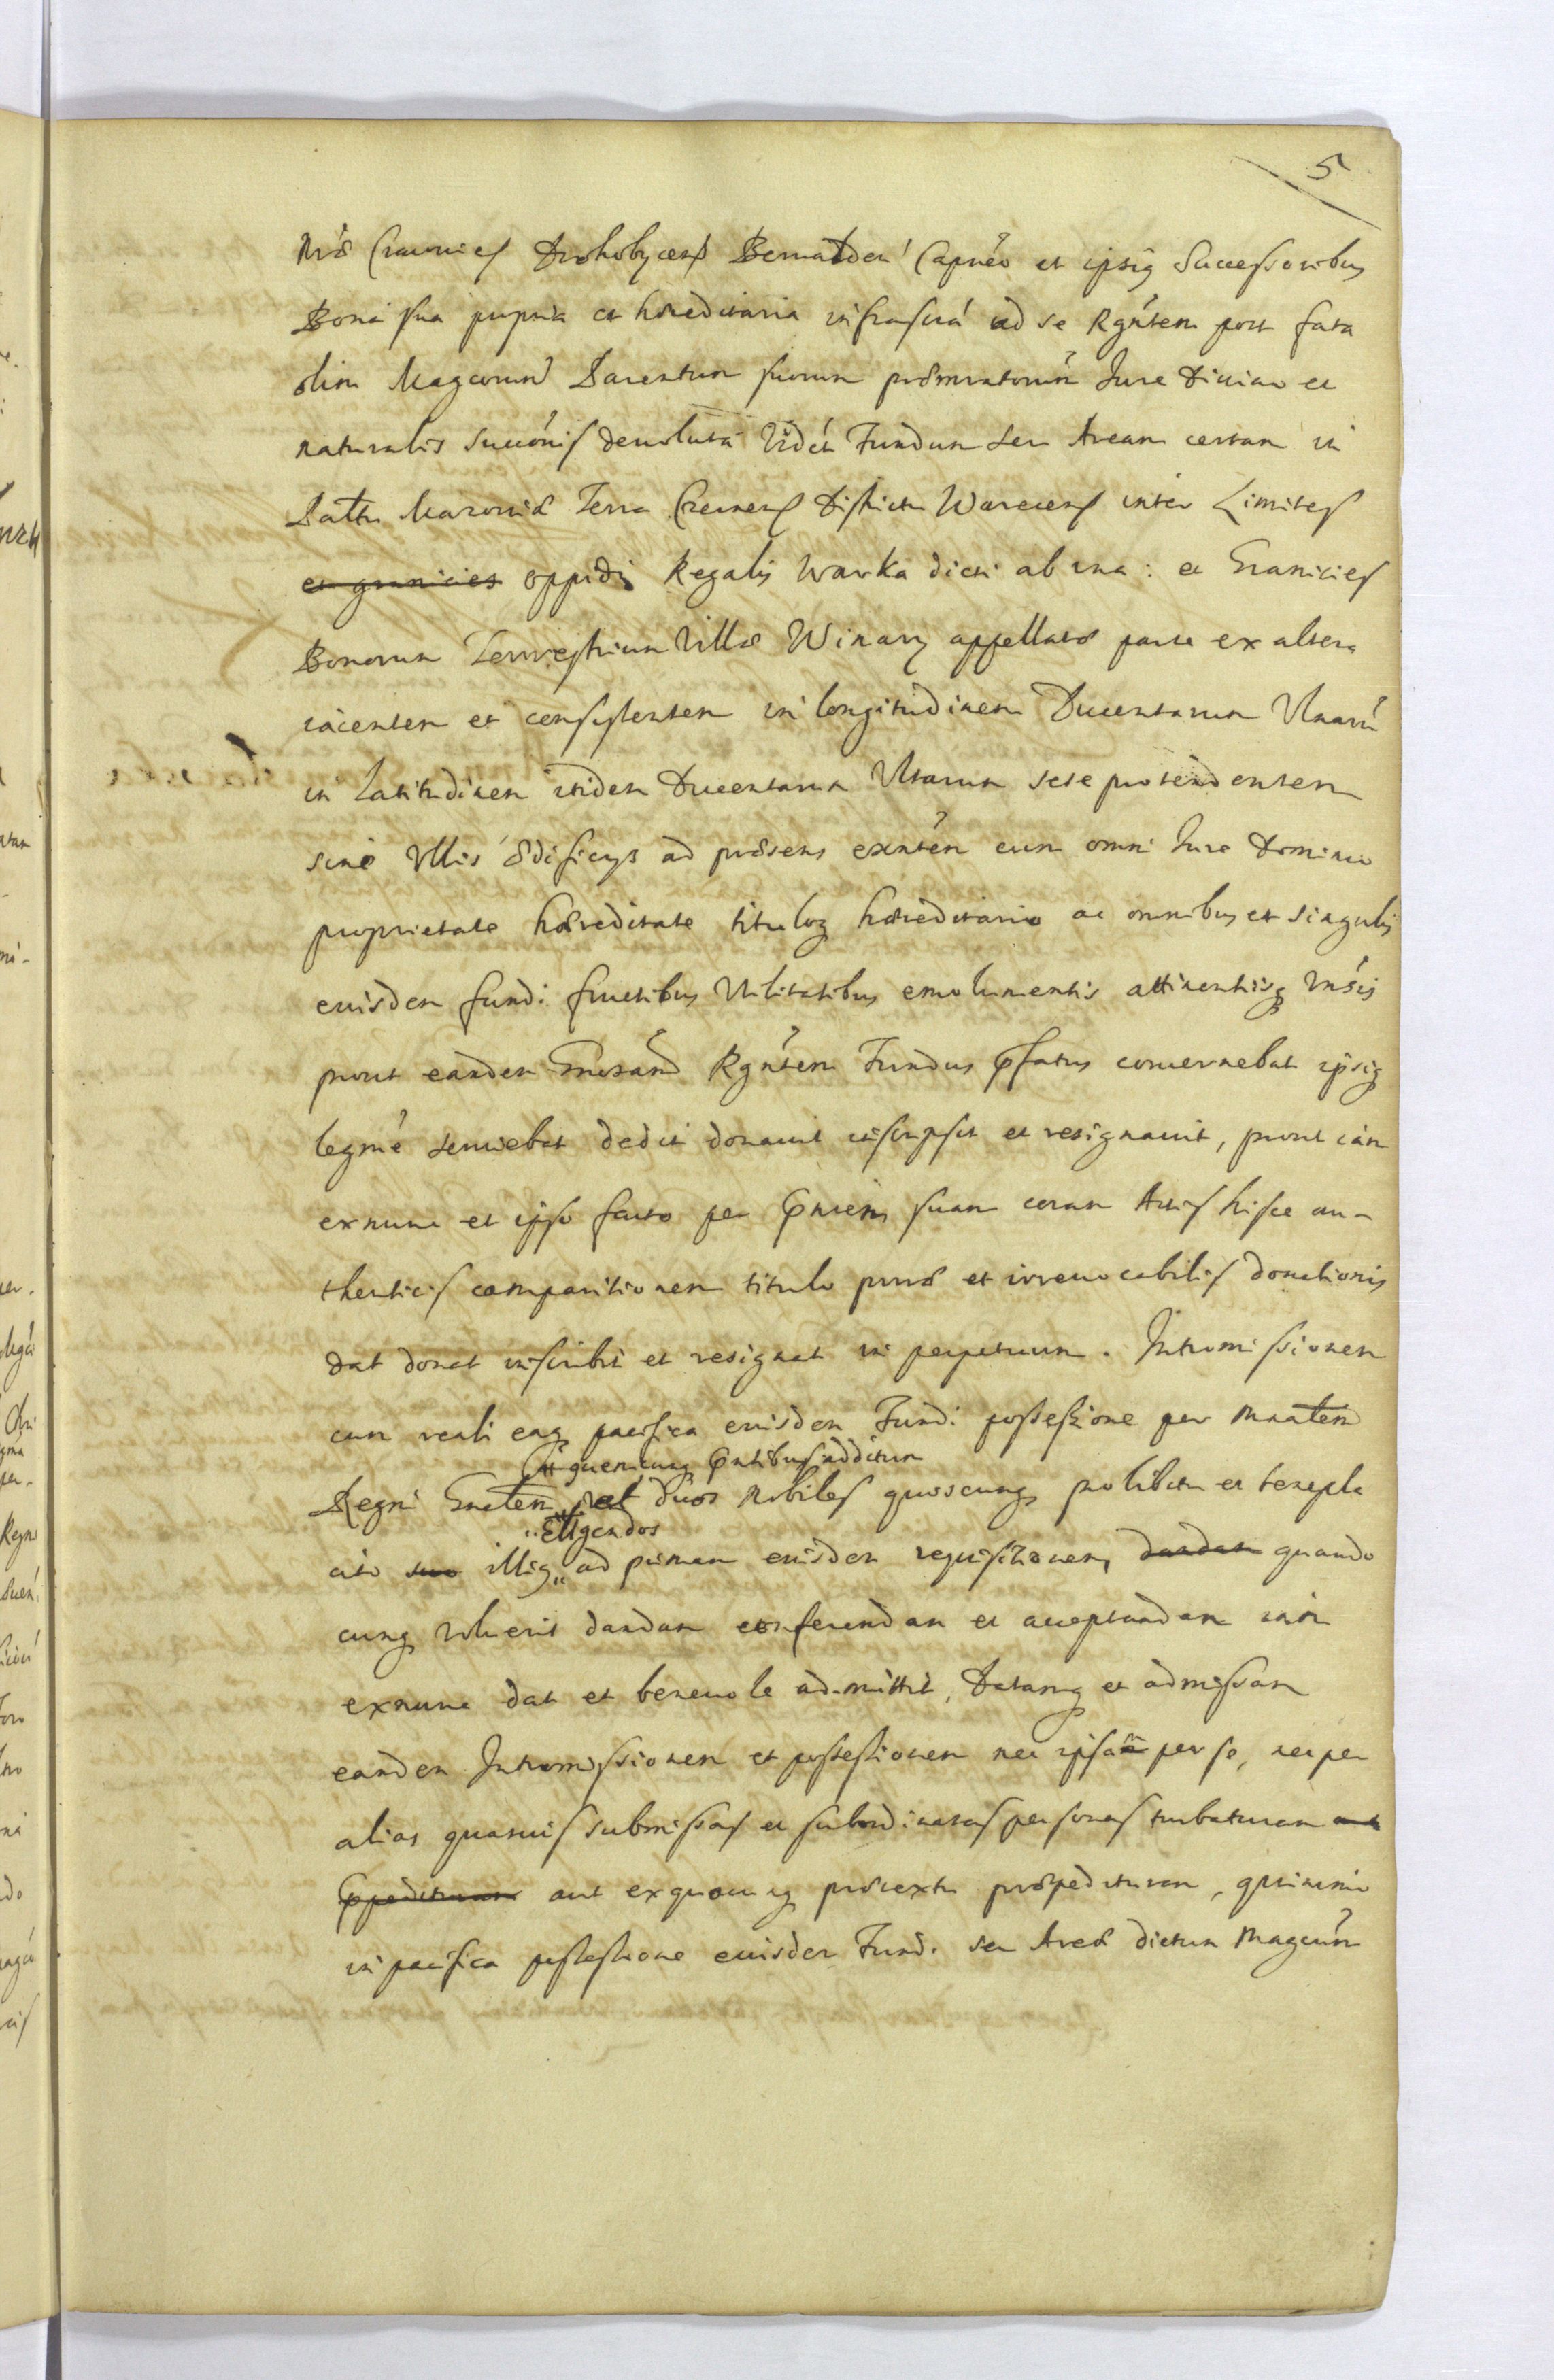 5
Bona sua propria et hæreditaria infrascrá ad se Rgñtem post fata
olim Magcorum Parentum suorum præmratorum Jure Diviso et
naturalis succónis devoluta Vidct Fundum seu Aream certam in
Pattu Mazoviæ Terra Czernens Districtu Warecens inter Limites
et granicies oppidi Regalis Warka dicti ab una: et Granicies
Bonorum Terrestrium Villæ Winary appellatæ parte ex altera
iacentem et consistentem in longitudinem Ducentarum Ulnarũ
in Latitudinem itidem Ducentarum Ulnarum sese protendentem
sine Ullis ædificijs ad præsens exntem cum omni Jure Dominio
proprietate hæreditate tituloq hæreditario ac omnibus et singulis
eiusdem fundi fructibus Utilitatibus emolumentis attinentijsq Vnsis
prout eandem Rgñtem Fundus pfatus concernebat ipsiq
legmé serviebat dedit donavit inscripsit et resignavit, prout iam
exnunc et ipso facto per suam coram Actis hisce au-
thenticis comparitionem titulo puræ et irrevocabilis donationis
dat donat inscribit et resignat in perpetuum. Intromissionem
cum reali eaq pacifica eiusdem Fundi possessione per Mnrlem
quemcunq pntibus additum
Regni Gnrlem vel duos Nobiles quoscunq pro libitu et bene pla
Eligendos
cito suo illiq ad primam eiusdem requisitionem, dandam quando
cunq voluerit dandam conferendam et acceptandam iam
exnunc dat et benevole admittit, Datamq et admissam
eandem Intromissionem et possessionem nec ipsam per se, nec per
alias quasvis submissas et subordinatas personas turbaturam aut
ppedituram aut exquocunq prætextu præpedituram, quinimo
in pacifica possessione eiusdem Fundi seu Areæ dictum Magcum